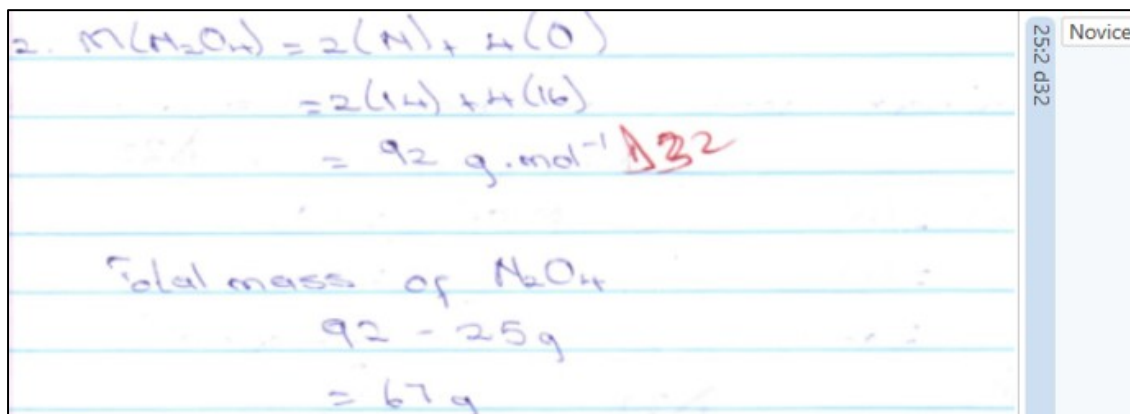 2. M(N₂O₄) = 2(N) + 4(O)
= 2(14) + 4(16)
= 92 g.mol⁻¹ D32
Total mass of N₂O₄
92 - 25g
= 67 g
25:2 d32
Novice